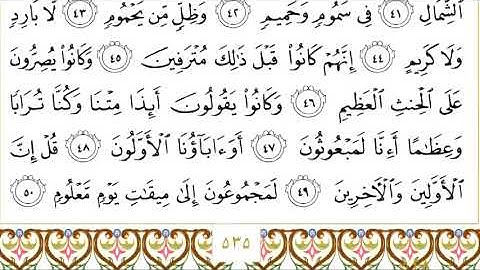 ٱلشِّمَالِ ٤١ فِي سَمُومٍ وَحَمِيمٍ ٤٢ وَظِلٍّ مِّن يَحْمُومٍ ٤٣ لَّا بَارِدٍ
وَلَا كَرِيمٍ ٤٤ إِنَّهُمْ كَانُوا۟ قَبْلَ ذَٰلِكَ مُتْرَفِينَ ٤٥ وَكَانُوا۟ يُصِرُّونَ
عَلَى ٱلْحِنثِ ٱلْعَظِيمِ ٤٦ وَكَانُوا۟ يَقُولُونَ أَئِذَا مِتْنَا وَكُنَّا تُرَابًا
وَعِظَٰمًا أَءِنَّا لَمَبْعُوثُونَ ٤٧ أَوَءَابَآؤُنَا ٱلْأَوَّلُونَ ٤٨ قُلْ إِنَّ
ٱلْأَوَّلِينَ وَٱلْءَاخِرِينَ ٤٩ لَمَجْمُوعُونَ إِلَىٰ مِيقَٰتِ يَوْمٍ مَّعْلُومٍ ٥٠
٥٣٥